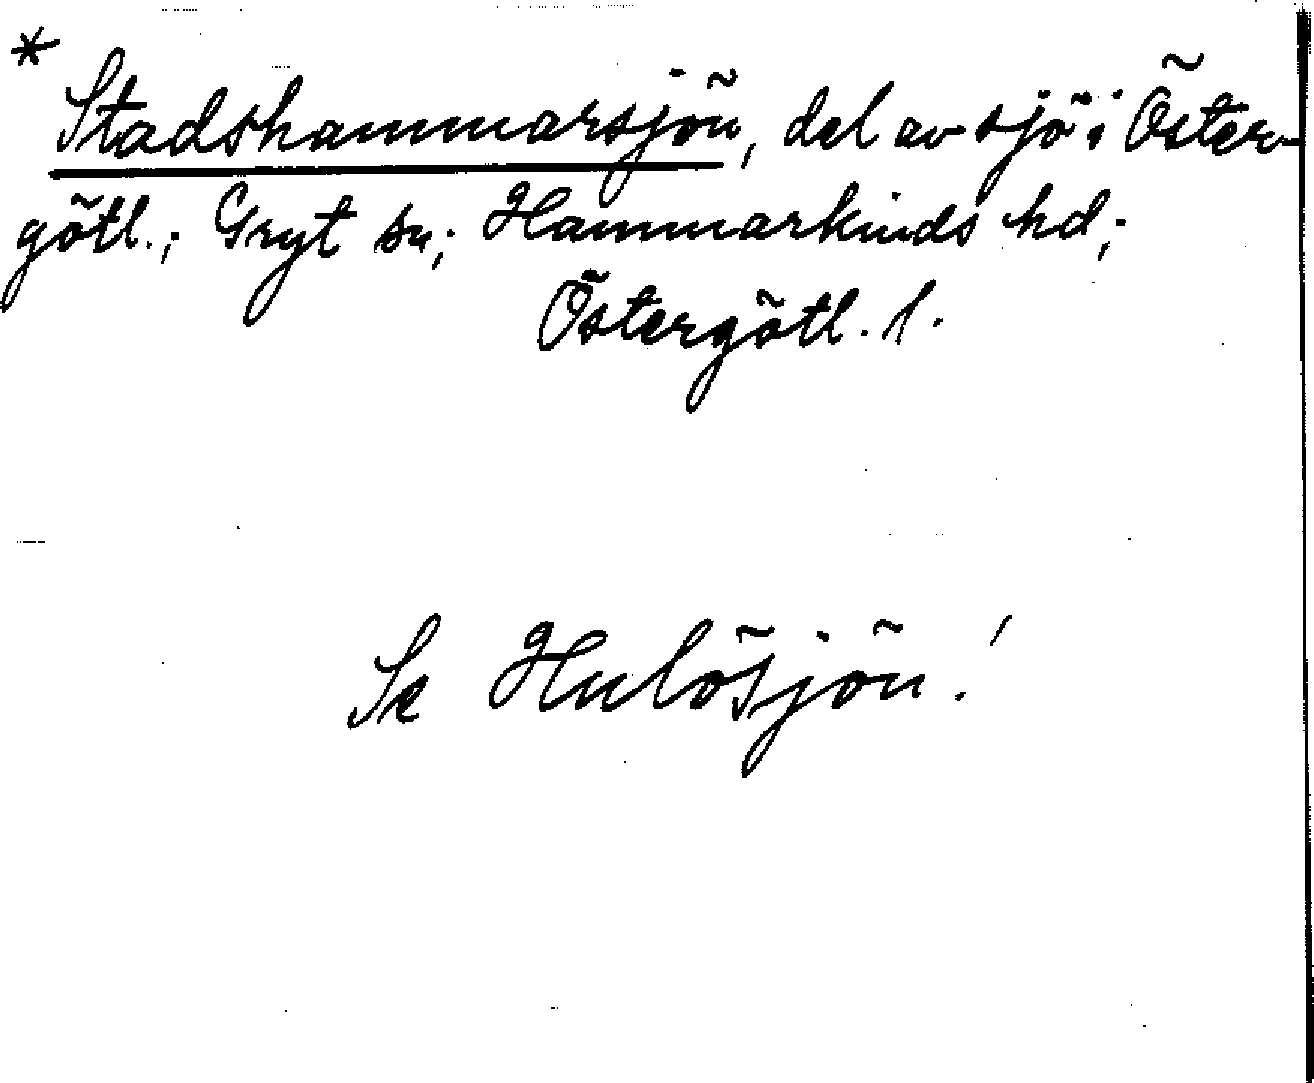 * Stadshammarsjön, del av sjö i Öster-
götl.; Gryt sn; Hammarkinds hd;
Östergötl. l.
Se Hulösjön!